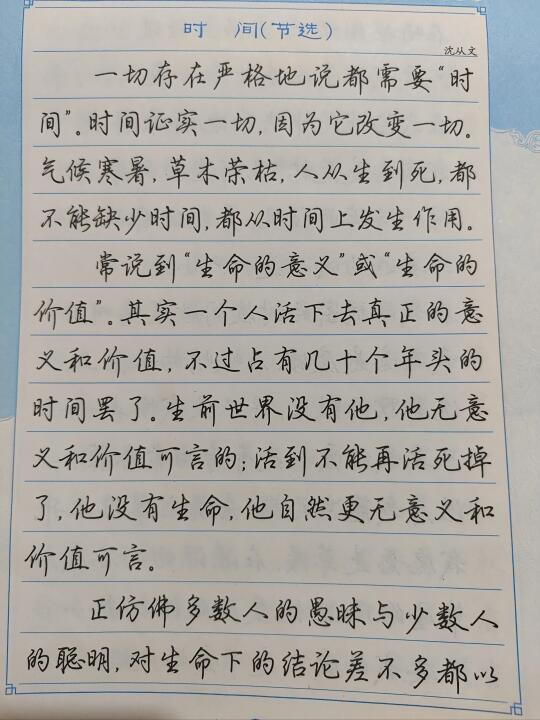 时 间(节选)
沈从文
一切存在严格地说都需要“时
间”。时间证实一切,因为它改变一切。
气候寒暑,草木荣枯,人从生到死,都
不能缺少时间,都从时间上发生作用。
常说到“生命的意义”或“生命的
价值”。其实一个人活下去真正的意
义和价值,不过占有几十个年头的
时间罢了。生前世界没有他,他无意
义和价值可言的;活到不能再活死掉
了,他没有生命,他自然更无意义和
价值可言。
正仿佛多数人的愚昧与少数人
的聪明,对生命下的结论差不多都以